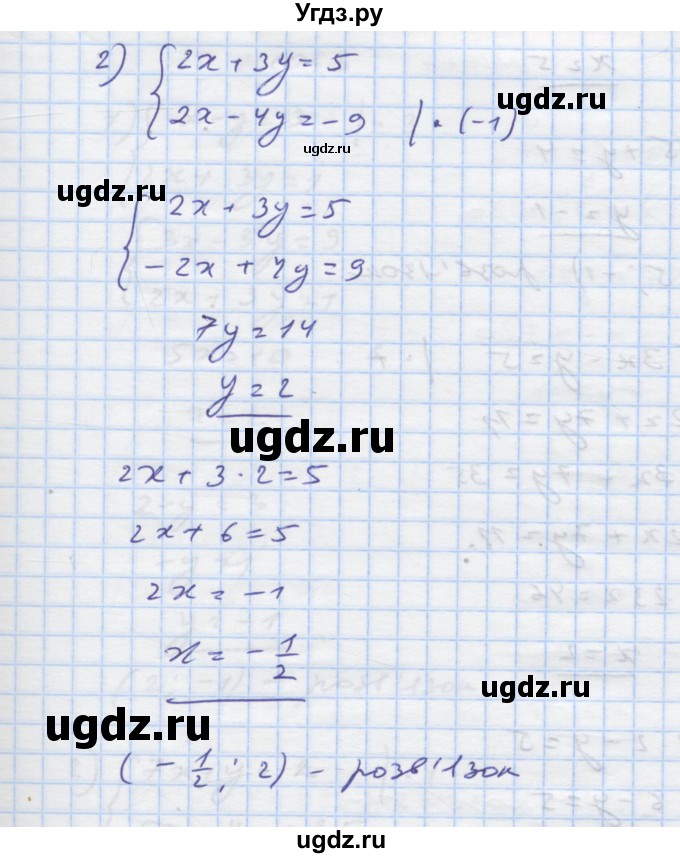 Угдз.ру
2) { 2x + 3y = 5
2x - 4y = -9 | · (-1)
ugdz.ru
ugdz.ru
ugdz.ru
{ 2x + 3y = 5
-2x + 4y = 9
7y = 14
y = 2
ugdz.ru
2x + 3 · 2 = 5
2x + 6 = 5
2x = -1
x = - 1/2
ugdz.ru
ugdz.ru
(- 1/2; 2) - розв'язок
ugdz.ru
ugdz.ru